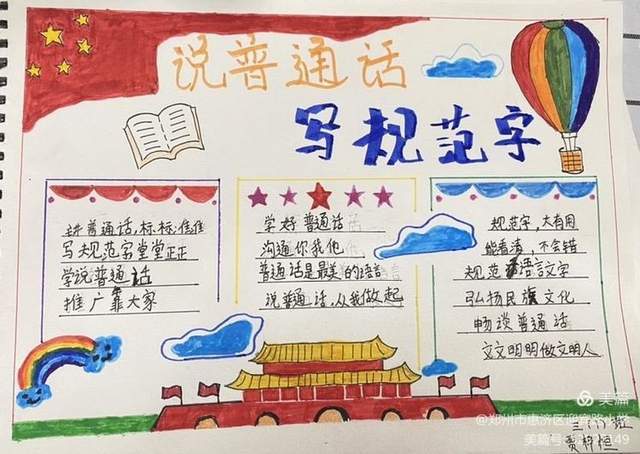 说普通话
写规范字
讲普通话,标标准准
写规范字堂堂正正
学说普通话
推广靠大家
学好普通话
沟通你我他
普通话是最美的语言
说普通话,从我做起
规范字,大有用
能看清,不会错
规范语言文字
弘扬民族文化
畅谈普通话
文文明明做文明人
美篇
@郑州市惠济区迎宾路小学
美篇号
149